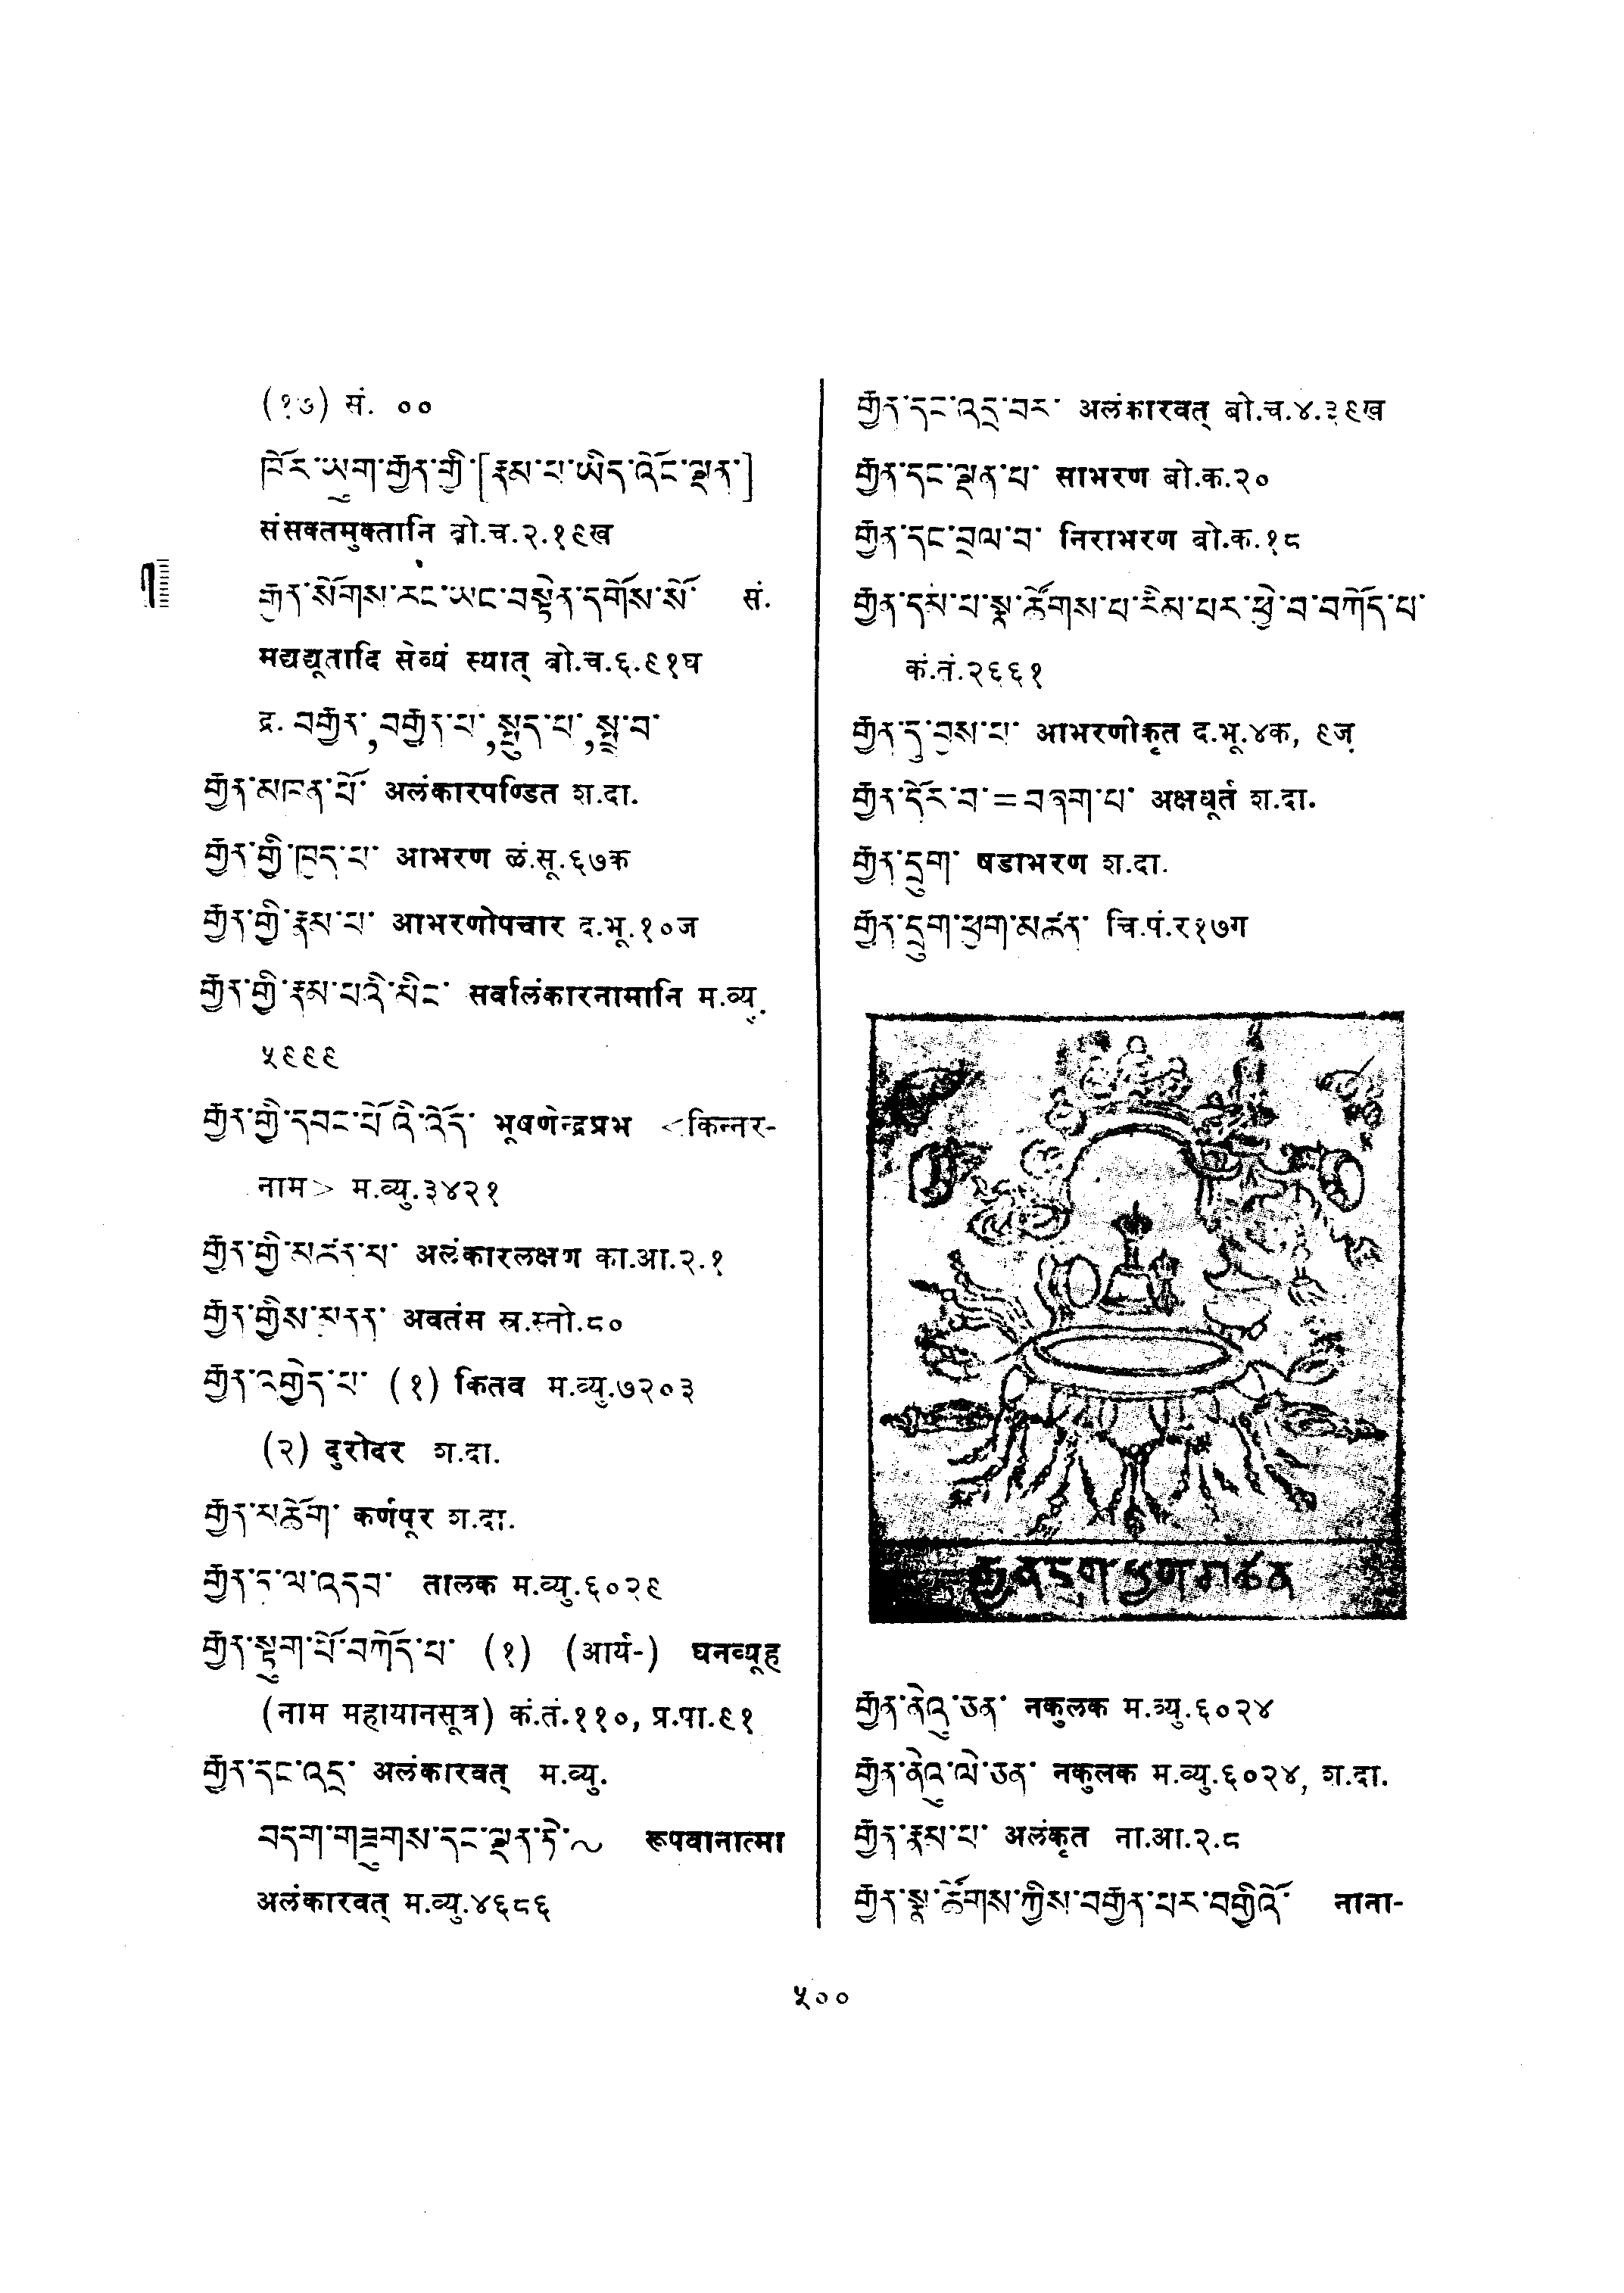 (१७) सं. ००
ཁོར་ཡུག་རྒྱན་གྱི་[རྣམ་པ་ཡིད་འོང་ལྡན་]
संसक्तमुक्तानि बो.च.२.१९ख
རྒྱན་སོགས་རང་ཡང་བསྟེན་དགོས་སོ་ सं.
मद्यद्यूतादि सेव्यं स्यात् बो.च.६.९१घ
द्र. བརྒྱན་, བརྒྱན་པ་, སྤུད་པ་, སྤྲ་བ་
རྒྱན་མཁན་པོ་ अलंकारपण्डित श.दा.
རྒྱན་གྱི་ཁྱད་པ་ आभरण ळं.सू.६७क
རྒྱན་གྱི་རྣམ་པ་ आभरणोपचार द.भू.१०ज
རྒྱན་གྱི་རྣམ་པའི་མིང་ सर्वालंकारनामानि म.व्यु.
५९९९
རྒྱན་གྱི་དབང་པོའི་འོད་ भूषणेन्द्रप्रभ <किन्नर-
नाम> म.व्यु.३४२१
རྒྱན་གྱི་མཚན་མ་ अलंकारलक्षण का.आ.२.१
རྒྱན་གྱིས་མནན་ अवतंस स्र.स्तो.८०
རྒྱན་འགྱེད་པ་ (१) कितव म.व्यु.७२०३
(२) दुरोदर श.दा.
རྒྱན་མཆོག་ कर्णपूर श.दा.
རྒྱན་ཏ་ལ་འདབ་ तालक म.व्यु.६०२९
རྒྱན་སྟུག་པོ་བཀོད་པ་ (१) (आर्य-) घनव्यूह
(नाम महायानसूत्र) कं.तं.११०, प्र.पा.९१
རྒྱན་དང་འདྲ་ अलंकारवत् म.व्यु.
བདག་གཟུགས་དང་ལྡན་ཏེ་~ रूपवानात्मा
अलंकारवत् म.व्यु.४६८६
རྒྱན་དང་འདྲ་བར་ अलंकारवत् बो.च.४.३९ख
རྒྱན་དང་ལྡན་པ་ साभरण बो.क.२०
རྒྱན་དང་བྲལ་བ་ निराभरण बो.क.१८
རྒྱན་དམ་པ་སྣ་ཚོགས་པ་རིམ་པར་ཕྱེ་བ་བཀོད་པ་
कं.तं.२६६१
རྒྱན་དུ་བྱས་པ་ आभरणीकृत द.भू.४क, ९ज
རྒྱན་དོར་བ་=བཞག་པ་ अक्षधूर्त श.दा.
རྒྱན་དྲུག་ षडाभरण श.दा.
རྒྱན་དྲུག་ཕྱག་མཚན་ चि.पं.र१७ग
རྒྱན་དྲུག་ཕྱག་མཚན
རྒྱན་ནེའུ་ཅན་ नकुलक म.व्यु.६०२४
རྒྱན་ནེའུ་ལེ་ཅན་ नकुलक म.व्यु.६०२४, श.दा.
རྒྱན་རྣམ་པ་ अलंकृत ना.आ.२.८
རྒྱན་སྣ་ཚོགས་ཀྱིས་བརྒྱན་པར་བགྱིའོ་ नाना-
५००